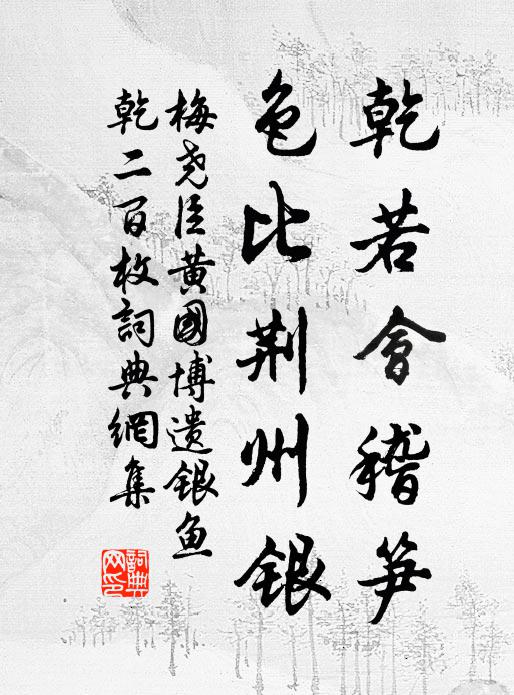 乾若會稽笋
色比荆州銀
梅尧臣黄國博遗銀鱼
乾二百枚詞典網集
詞典
网印